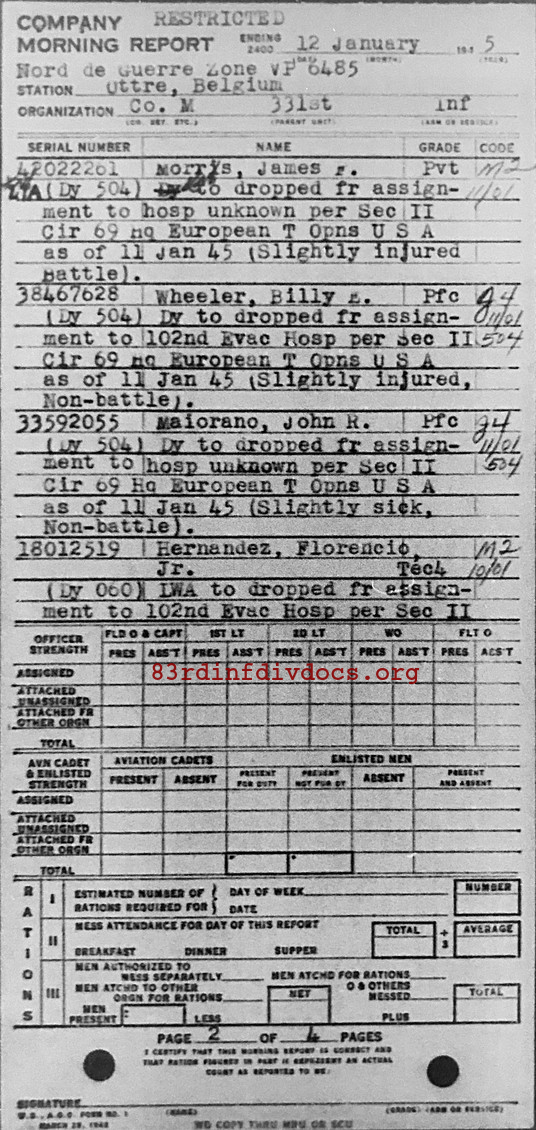 COMPANY RESTRICTED
MORNING REPORT ENDING 2400 12 January 194 5
Nord de Guerre Zone VP 6485
STATION Ottre, Belgium
ORGANIZATION Co. M 331st Inf
(CO. DET. ETC.) (PARENT UNIT) (ARM OR SERVICE)
SERIAL NUMBER NAME GRADE CODE
42022261 Morris, James Pvt M2
(Dy 504) Dy to dropped fr assign- 11/01
ment to hosp unknown per Sec II
Cir 69 Hq European T Opns U S A
as of 11 Jan 45 (Slightly injured
Battle).
38467628 Wheeler, Billy Pfc g4
(Dy 504) Dy to dropped fr assign- 11/01
ment to 102nd Evac Hosp per Sec II 504
Cir 69 Hq European T Opns U S A
as of 11 Jan 45 (Slightly injured,
Non-battle).
33592055 Maiorano, John R. Pfc g4
(Dy 504) Dy to dropped fr assign- 11/01
ment to hosp unknown per Sec II 504
Cir 69 Hq European T Opns U S A
as of 11 Jan 45 (Slightly sick,
Non-battle).
18012519 Hernandez, Florencio, M2
Jr. Tec4 10/01
(Dy 060) LWA to dropped fr assign-
ment to 102nd Evac Hosp per Sec II
OFFICER STRENGTH FLD O & CAPT 1ST LT 2D LT WO FLT O
PRES ABS'T PRES ABS'T PRES ABS'T PRES ABS'T PRES ABS'T
ASSIGNED 83rdinfdivdocs.org
ATTACHED UNASSIGNED
ATTACHED FR OTHER ORGN
TOTAL
AVN CADET & ENLISTED STRENGTH AVIATION CADETS ENLISTED MEN
PRESENT ABSENT PRESENT FOR DUTY PRESENT NOT FOR DY ABSENT PRESENT AND ABSENT
ASSIGNED
ATTACHED UNASSIGNED
ATTACHED FR OTHER ORGN
TOTAL
RATIONS
I ESTIMATED NUMBER OF RATIONS REQUIRED FOR DAY OF WEEK DATE NUMBER
II MESS ATTENDANCE FOR DAY OF THIS REPORT TOTAL ÷ 3 AVERAGE
BREAKFAST DINNER SUPPER
III MEN AUTHORIZED TO MESS SEPARATELY MEN ATCHD FOR RATIONS
MEN ATCHD TO OTHER ORGN FOR RATIONS NET O & OTHERS MESSED TOTAL
MEN PRESENT LESS PLUS
PAGE 2 OF 4 PAGES
I CERTIFY THAT THIS MORNING REPORT IS CORRECT AND
THAT RATION FIGURES IN PART III REPRESENT AN ACTUAL
COUNT AS REPORTED TO ME:
SIGNATURE
W.D., A.G.O. FORM NO. 1 (NAME) (GRADE) (ARM OR SERVICE)
MARCH 25, 1942 NO COPY THRU MRU OR SCU